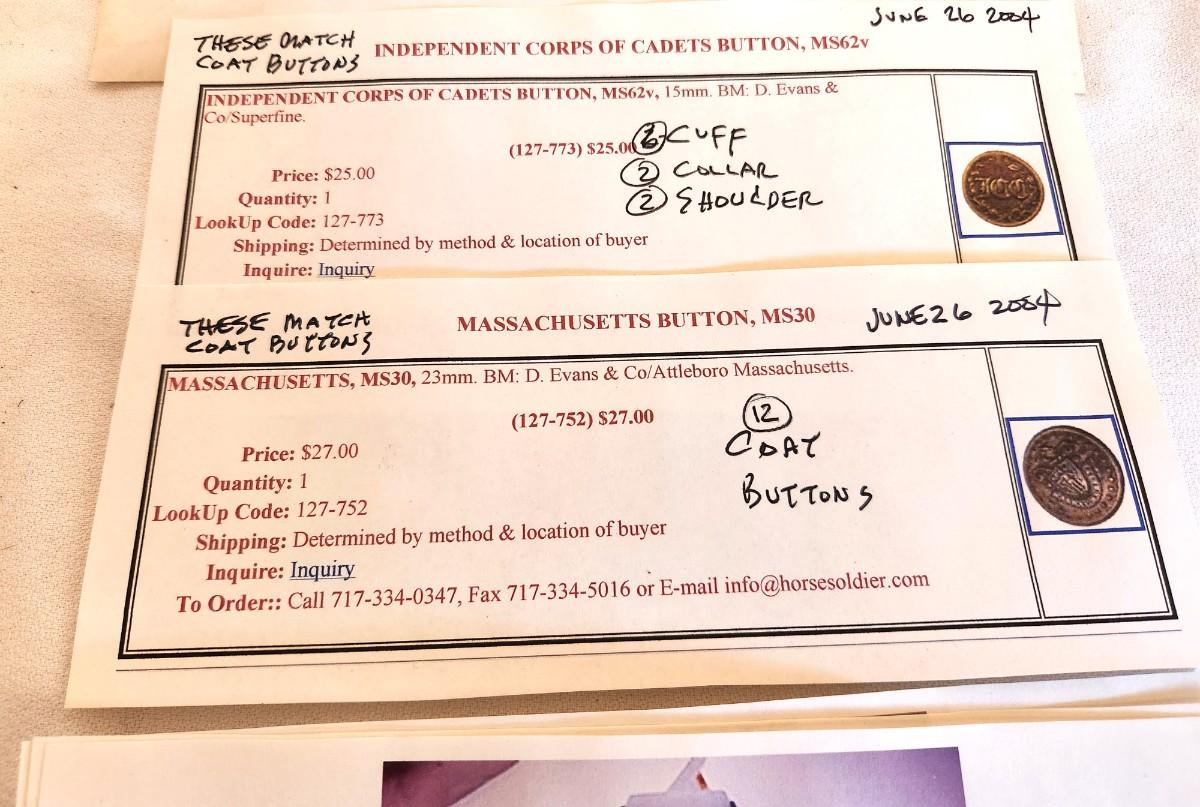 JUNE 26 2004
THESE MATCH
COAT BUTTONS
INDEPENDENT CORPS OF CADETS BUTTON, MS62v
INDEPENDENT CORPS OF CADETS BUTTON, MS62v, 15mm. BM: D. Evans &
Co/Superfine.
(127-773) $25.00
6 CUFF
2 COLLAR
2 SHOULDER
Price: $25.00
Quantity: 1
LookUp Code: 127-773
Shipping: Determined by method & location of buyer
Inquire: Inquiry
ICC
THESE MATCH
COAT BUTTONS
MASSACHUSETTS BUTTON, MS30
JUNE 26 2004
MASSACHUSETTS, MS30, 23mm. BM: D. Evans & Co/Attleboro Massachusetts.
(127-752) $27.00
12
COAT
BUTTONS
Price: $27.00
Quantity: 1
LookUp Code: 127-752
Shipping: Determined by method & location of buyer
Inquire: Inquiry
To Order:: Call 717-334-0347, Fax 717-334-5016 or E-mail info@horsesoldier.com